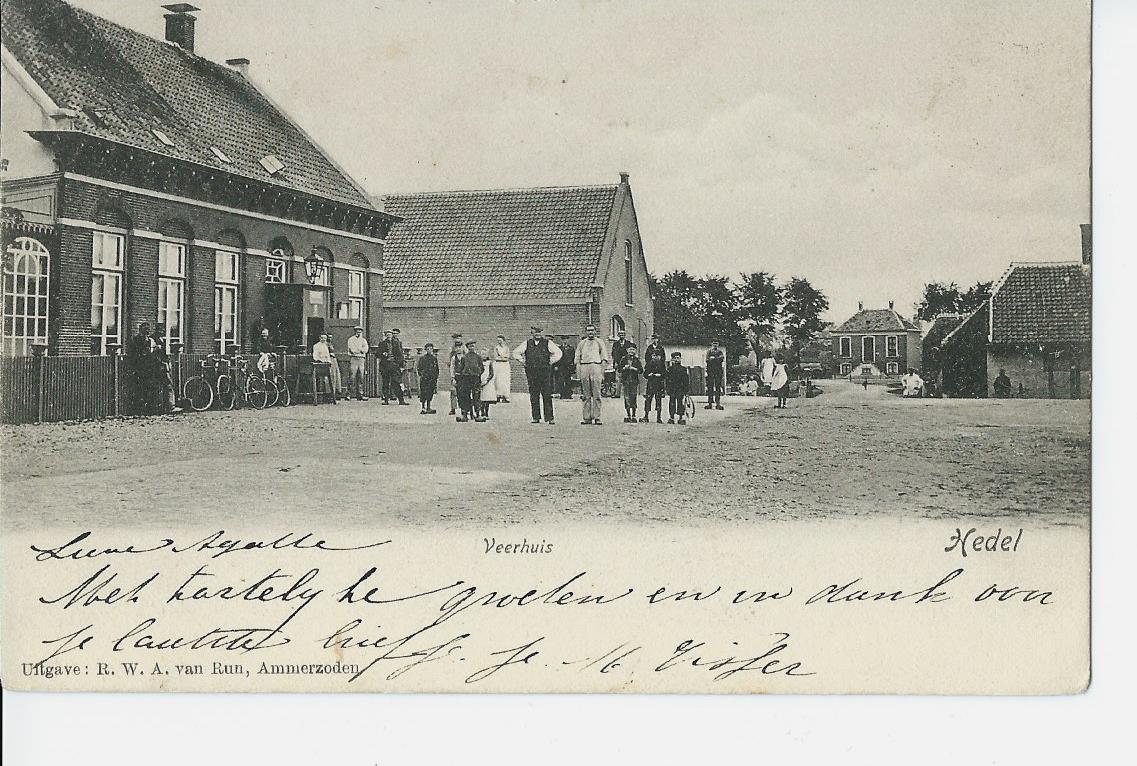 Lieve Agathe
Veerhuis
Hedel
Met hartelyke groeten en en dank voor
je laatste briefje. Je M. Visser
Uitgave: R. W. A. van Run, Ammerzoden